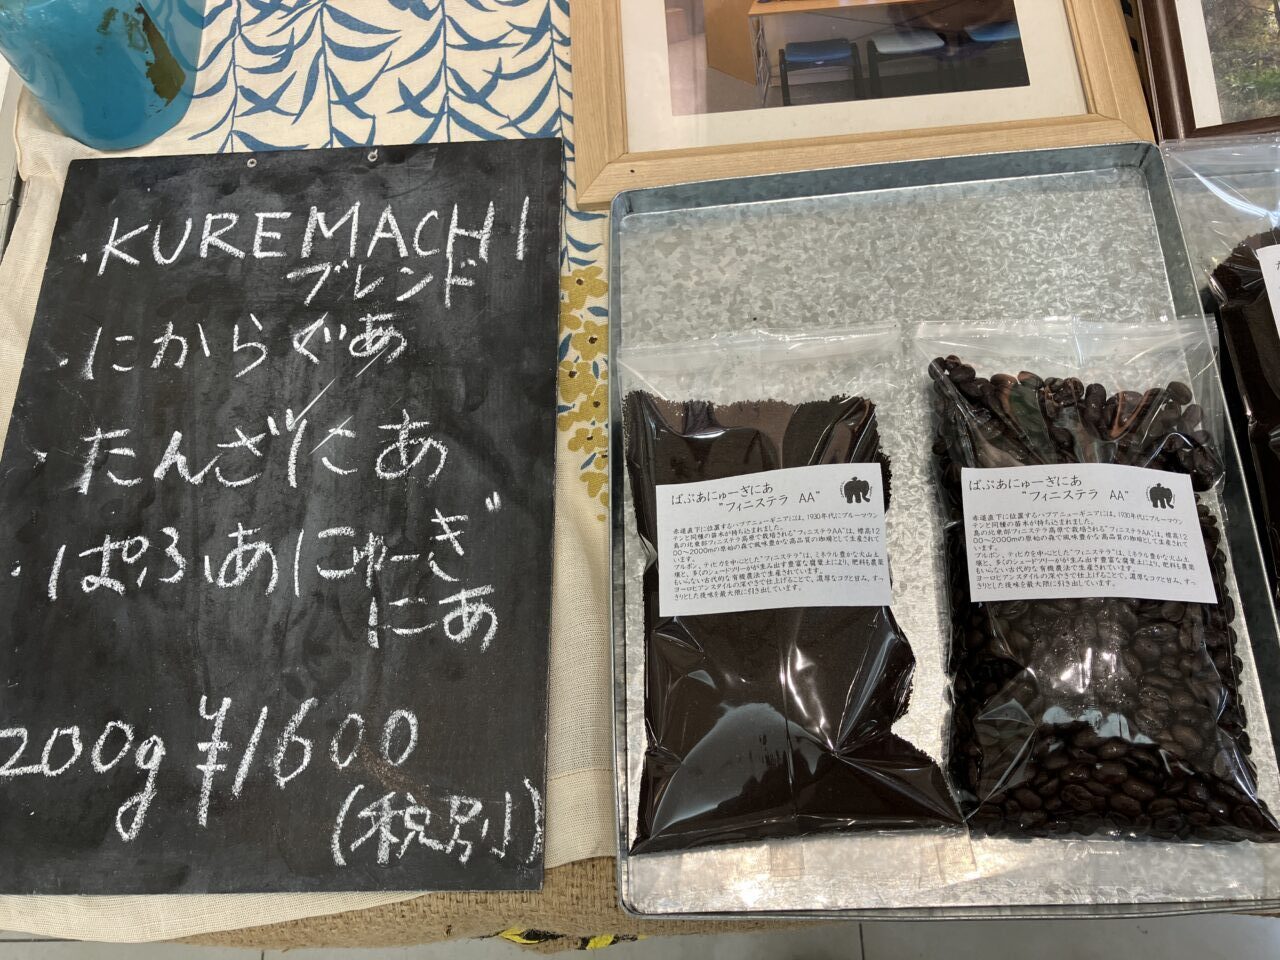 ・KUREMACHI
ブレンド
・にからぐあ
・たんざにあ
・ぱぷあにゅーぎ
にあ
200g ¥1600
(税別)
ぱぷあにゅーぎにあ
"フィニステラ AA"
赤道直下に位置するパプアニューギニアには、1930年代にブルーマウン
テンと同種の苗木が持ち込まれました。
島の北東部フィニステラ高原で栽培される"フィニステラAA"は、標高12
00～2000mの原始の森で風味豊かな高品質の珈琲として生産されて
います。
ブルボン、ティピカを中心とした"フィニステラ"は、ミネラル豊かな火山土
壌と、多くのシェードツリーが生み出す豊富な腐葉土により、肥料も農薬
もいらない古代的な有機農法で生産されています。
ヨーロピアンスタイルの深やきで仕上げることで、濃厚なコクと甘み、すっ
きりとした後味を最大限に引き出しています。
ぱぷあにゅーぎにあ
"フィニステラ AA"
赤道直下に位置するパプアニューギニアには、1930年代にブルーマウン
テンと同種の苗木が持ち込まれました。
島の北東部フィニステラ高原で栽培される"フィニステラAA"は、標高12
00～2000mの原始の森で風味豊かな高品質の珈琲として生産されて
います。
ブルボン、ティピカを中心とした"フィニステラ"は、ミネラル豊かな火山土
壌と、多くのシェードツリーが生み出す豊富な腐葉土により、肥料も農薬
もいらない古代的な有機農法で生産されています。
ヨーロピアンスタイルの深やきで仕上げることで、濃厚なコクと甘み、すっ
きりとした後味を最大限に引き出しています。